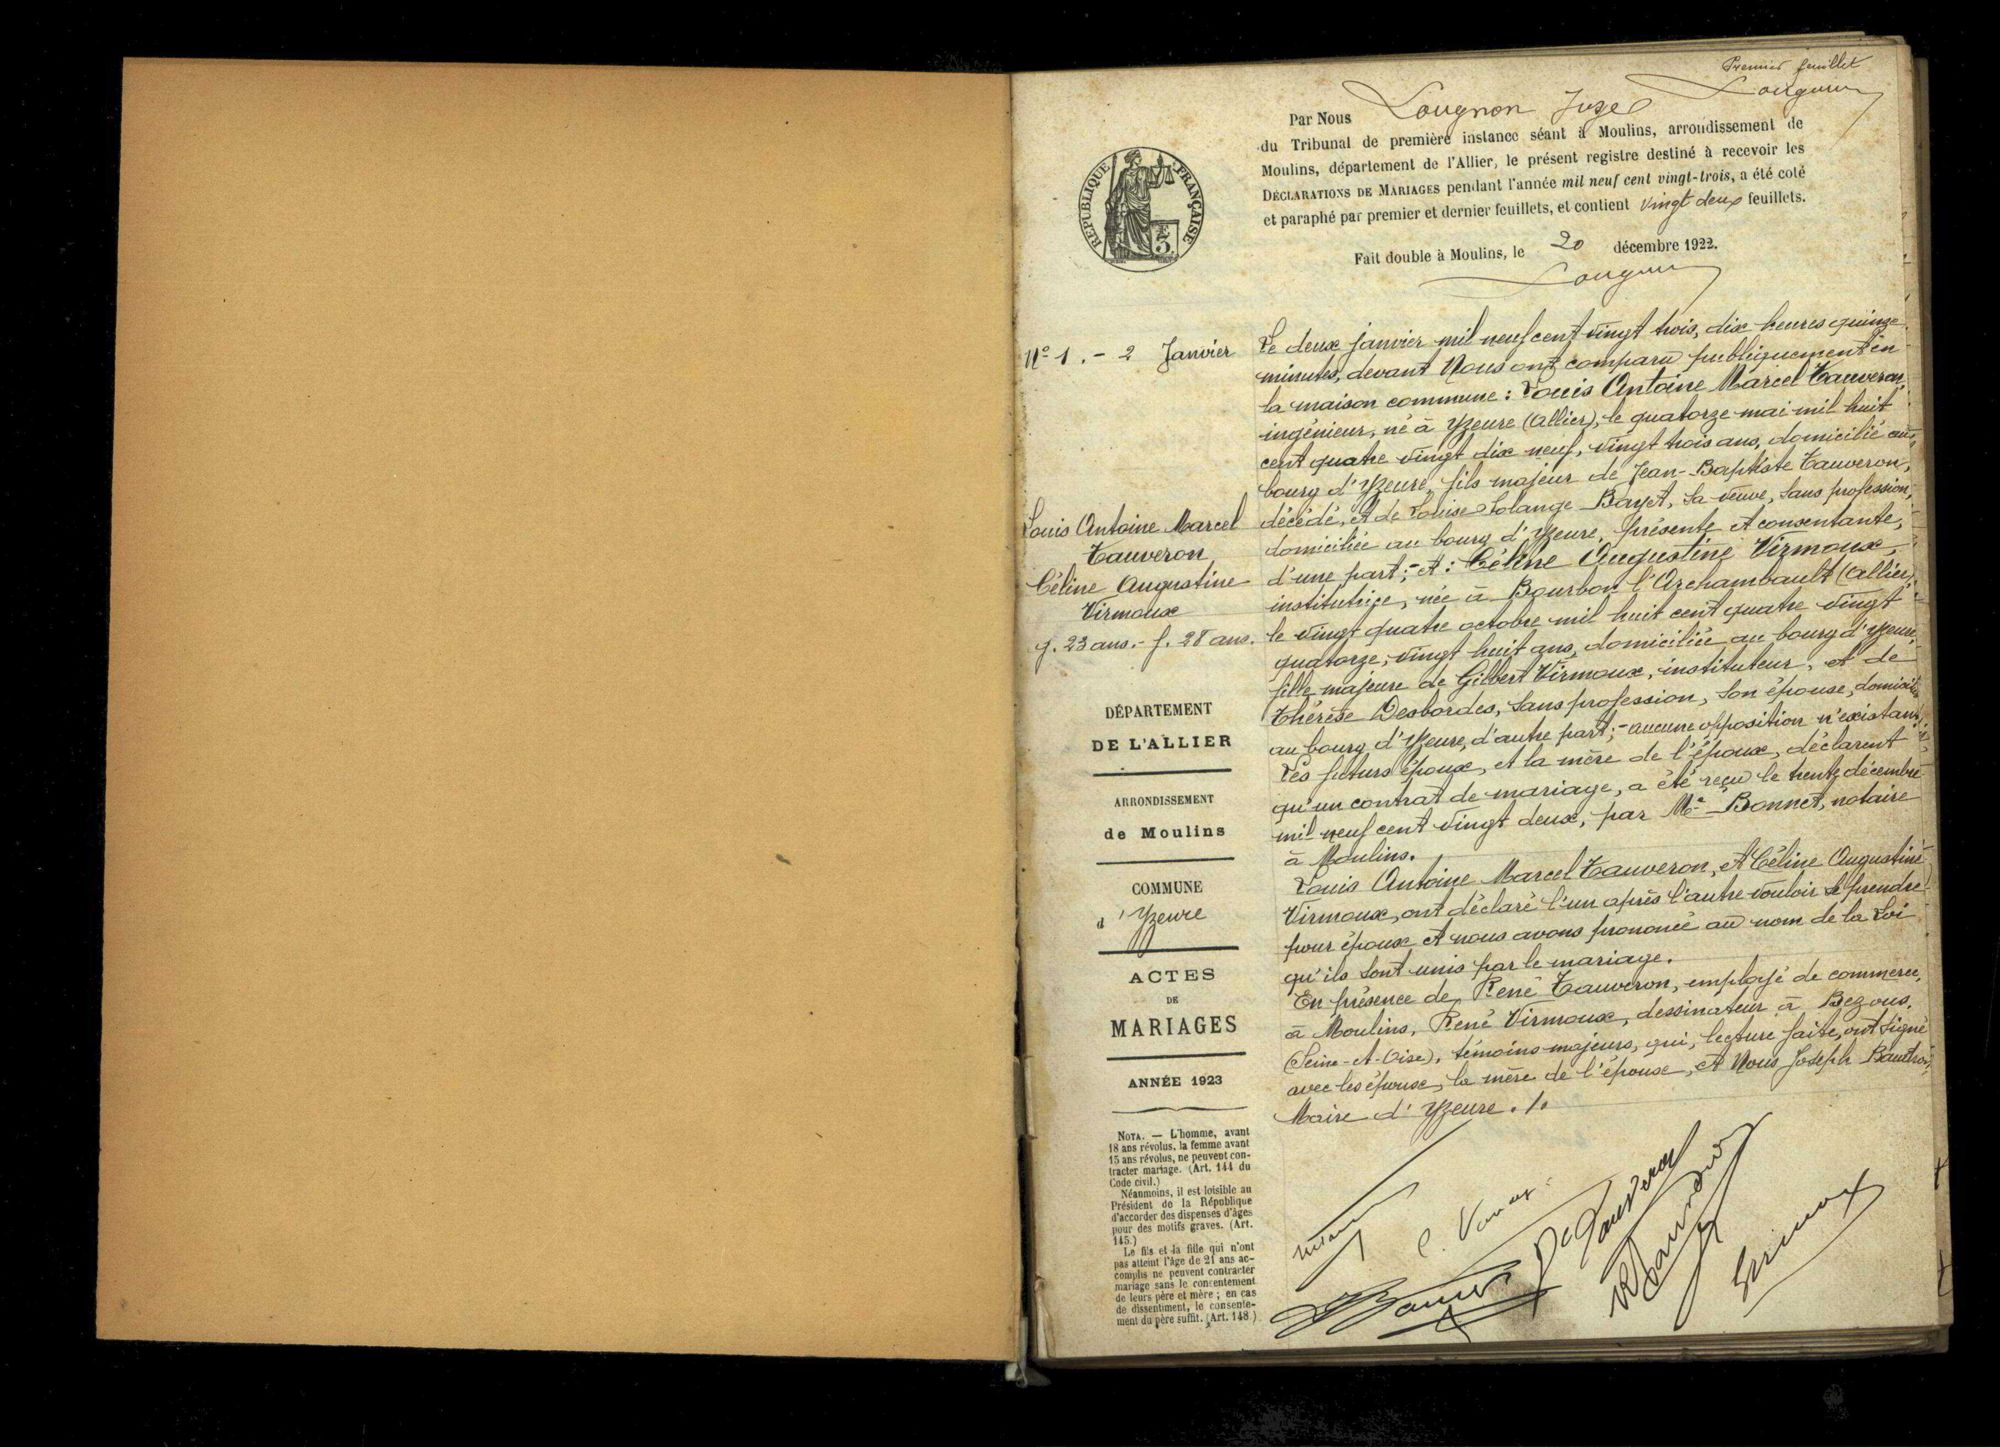 Premier feuillet
Par Nous Lougnon Juge
du Tribunal de première instance séant à Moulins, arrondissement de
Moulins, département de l'Allier, le présent registre destiné à recevoir les
DÉCLARATIONS DE MARIAGES pendant l'année mil neuf cent vingt-trois, a été coté
et paraphé par premier et dernier feuillets, et contient vingt deux feuillets.
Fait double à Moulins, le 20 décembre 1922.
RÉPUBLIQUE FRANÇAISE
3
N° 1. - 2 Janvier
Louis Antoine Marcel
Tauveron
Céline Augustine
Virmoux
g. 23 ans. - f. 28 ans.
DÉPARTEMENT
DE L'ALLIER
ARRONDISSEMENT
de Moulins
COMMUNE
d'Yzeure
ACTES
DE
MARIAGES
ANNÉE 1923
NOTA. — L'homme, avant
18 ans révolus, la femme avant
15 ans révolus, ne peuvent con-
tracter mariage. (Art. 144 du
Code civil.)
Néanmoins, il est loisible au
Président de la République
d'accorder des dispenses d'âges
pour des motifs graves. (Art.
145.)
Le fils et la fille qui n'ont
pas atteint l'âge de 21 ans ac-
complis ne peuvent contracter
mariage sans le consentement
de leurs père et mère ; en cas
de dissentiment, le consente-
ment du père suffit. (Art. 148)
Le deux janvier mil neuf cent vingt trois, dix heures quinze
minutes, devant Nous ont comparu publiquement en
la maison commune : Louis Antoine Marcel Tauveron,
ingénieur, né à Yzeure (Allier), le quatorze mai mil huit
cent quatre vingt dix neuf, vingt trois ans, domicilié au
bourg d'Yzeure, fils majeur de Jean-Baptiste Tauveron,
décédé, et de Louise Solange Bayet, sa veuve, sans profession,
domiciliée au bourg d'Yzeure, présente et consentante,
d'une part ; - et : Céline Augustine Virmoux,
institutrice, née à Bourbon l'Archambault (Allier),
le vingt quatre octobre mil huit cent quatre vingt
quatorze, vingt huit ans, domiciliée au bourg d'Yzeure,
fille majeure de Gilbert Virmoux, instituteur, et de
Thérèse Desbordes, sans profession, son épouse, domiciliés
au bourg d'Yzeure, d'autre part ; - aucune opposition n'existant,
Les futurs époux, et la mère de l'époux, déclarent
qu'un contrat de mariage, a été reçu le trente décembre
mil neuf cent vingt deux, par Me Bonnet, notaire
à Moulins.
Louis Antoine Marcel Tauveron, et Céline Augustine
Virmoux, ont déclaré l'un après l'autre vouloir se prendre
pour époux et nous avons prononcé au nom de la Loi
qu'ils sont unis par le mariage.
En présence de René Tauveron, employé de commerce,
à Moulins, René Virmoux, dessinateur à Bezons,
(Seine-et-Oise), témoins majeurs, qui, lecture faite, ont signé
avec les époux, la mère de l'époux, et Nous Joseph
Maire d'Yzeure. /.
Tauveron